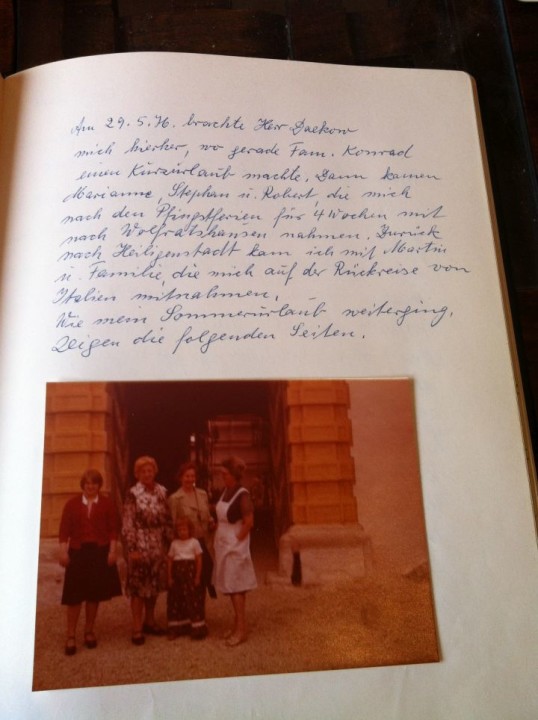 Am 29.5.76. brachte Herr Daekow
mich hierher, wo gerade Fam. Konrad
einen Kurzurlaub machte. Dann kamen
Marianne, Stephan u. Robert, die mich
nach den Pfingstferien für 4 Wochen mit
nach Wolfratshausen nahmen. Zurück
nach Heiligenstadt kam ich mit Martin
u. Familie, die mich auf der Rückreise von
Italien mitnahmen.
Wie mein Sommerurlaub weiterging,
zeigen die folgenden Seiten.